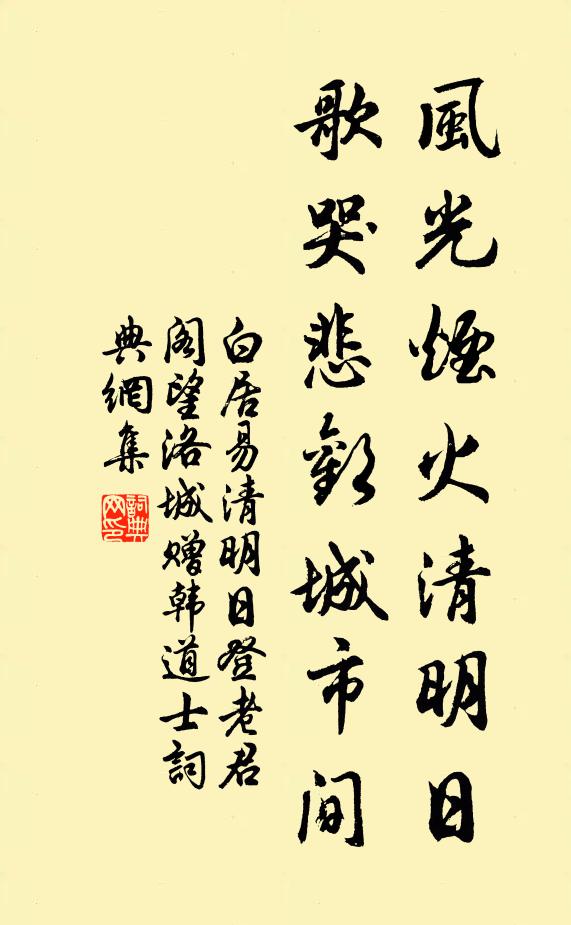 風光煙火清明日
歌哭悲歡城市间
白居易清明日登老君
阁望洛城赠韩道士詞
典網集
詞典
网印